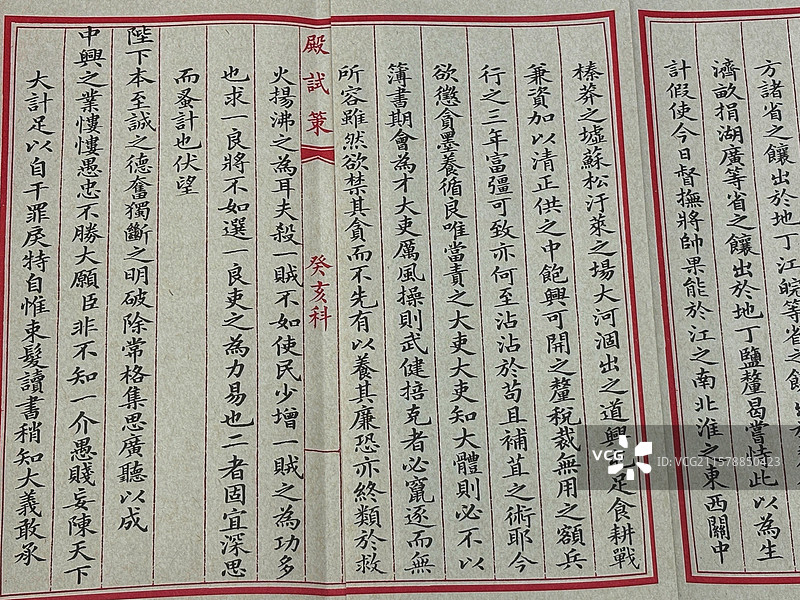 方諸省之饟出於地丁江皖等省之饟出
濟畝捐湖廣等省之饟出於地丁鹽釐曷嘗恃此以為生
計假使今日督撫將帥果能於江之南北淮之東西關中
榛莽之墟蘇松汙萊之場大河涸出之道興足食耕戰
兼資加以清正供之中飽興可開之釐稅裁無用之額兵
行之三年富彊可致亦何至沾沾於苟且補苴之術耶今
欲懲貪墨養循良唯當責之大吏大吏知大體則必不以
簿書期會為才大吏厲風操則武健掊克者必竄逐而無
所容雖然欲禁其貪而不先有以養其廉恐亦終類於救
殿試策
癸亥科
火揚沸之為耳夫殺一賊不如使民少增一賊之為功多
也求一良將不如選一良吏之為力易也二者固宜深思
而蚤計也伏望
陛下本至誠之德奮獨斷之明破除常格集思廣聽以成
中興之業慺慺愚忠不勝大願臣非不知一介愚賤妄陳天下
大計足以自干罪戾特自惟束髮讀書稍知大義敢承
VCG
VCG
ID:VCG211578850423